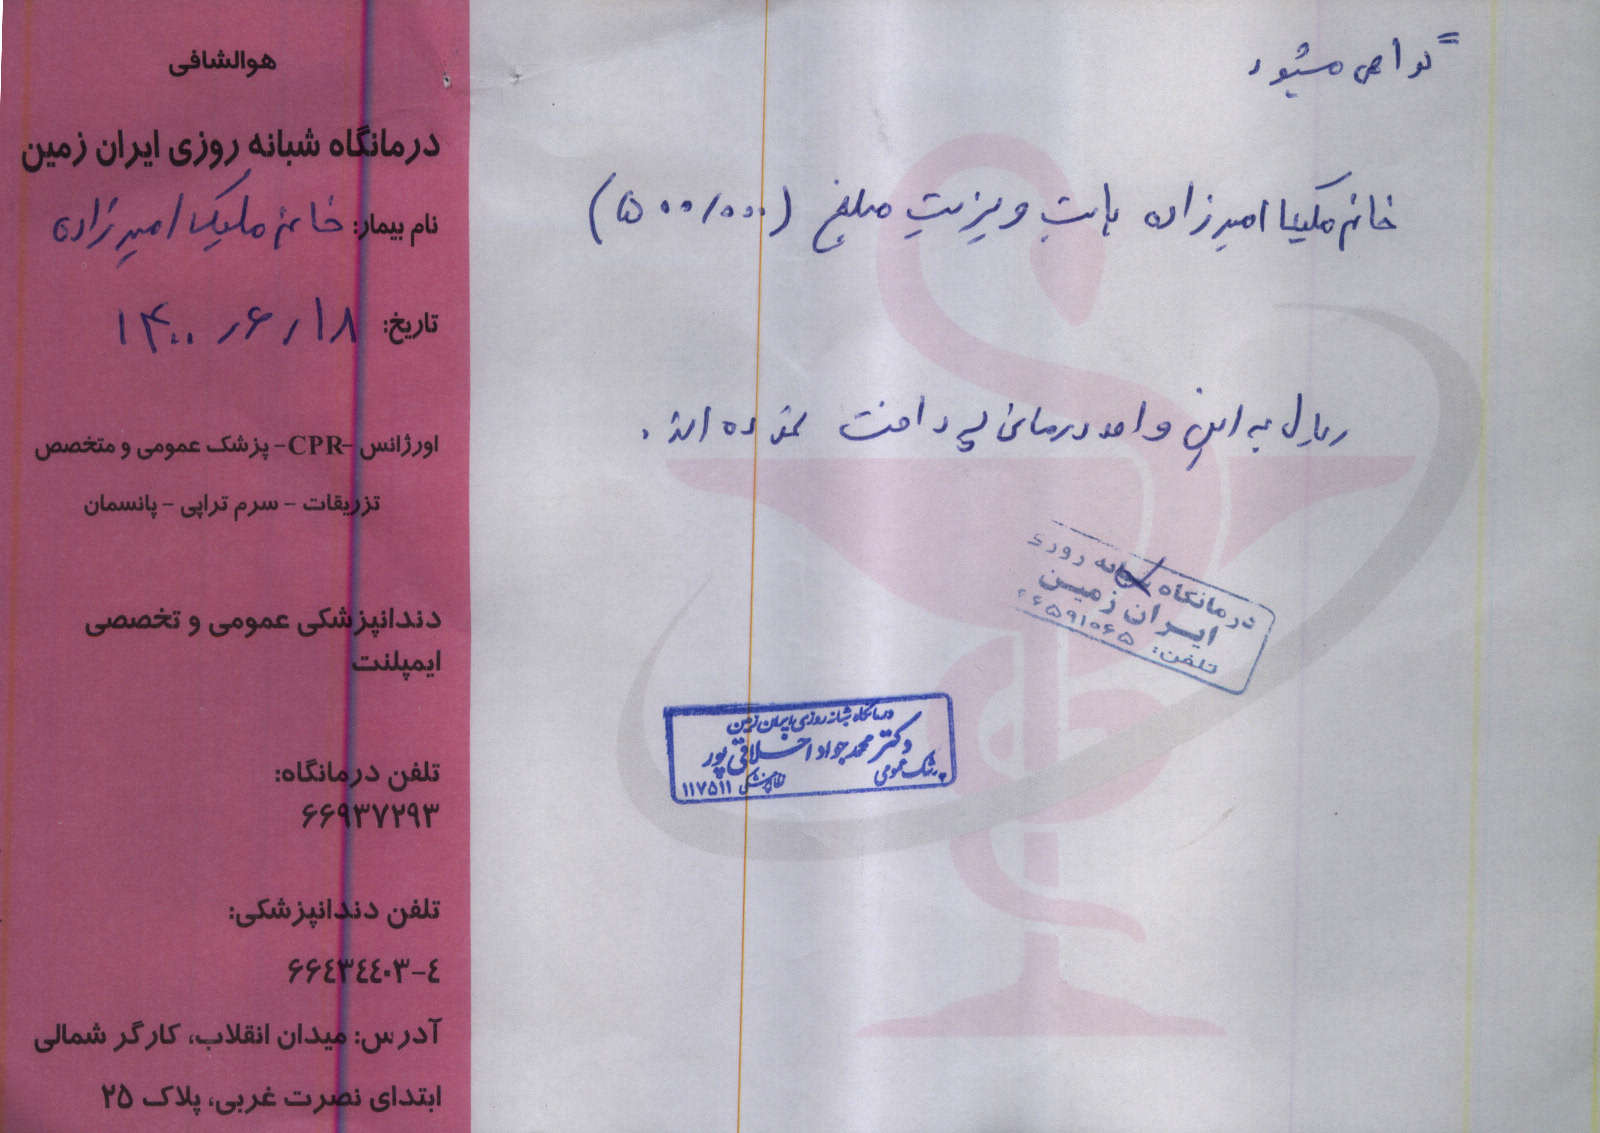 هوالشافی
درمانگاه شبانه روزی ایران زمین
نام بیمار: خانم ملیکا امیرزاده
تاریخ: ۱۴۰۰/۶/۱۸
اورژانس -CPR- پزشک عمومی و متخصص
تزریقات - سرم تراپی - پانسمان
دندانپزشکی عمومی و تخصصی
ایمپلنت
تلفن درمانگاه:
۶۶۹۳۷۲۹۳
تلفن دندانپزشکی:
۶۶٤۳٤٤۰۳-٤
آدرس: میدان انقلاب، کارگر شمالی
ابتدای نصرت غربی، پلاک ۲۵
گواهی میشود
خانم ملیکا امیرزاده بابت ویزیت مبلغ (۵۰۰/۰۰۰)
ریال به این واحد درمانی پرداخت نموده اند.
درمانگاه شبانه روزی
ایران زمین
تلفن: ۶۶۵۹۱۰۶۵
درمانگاه شبانه روزی ایران زمین
دکتر محمدجواد اخلاقی پور
پزشک عمومی
نظام پزشکی ۱۱۷۵۱۱